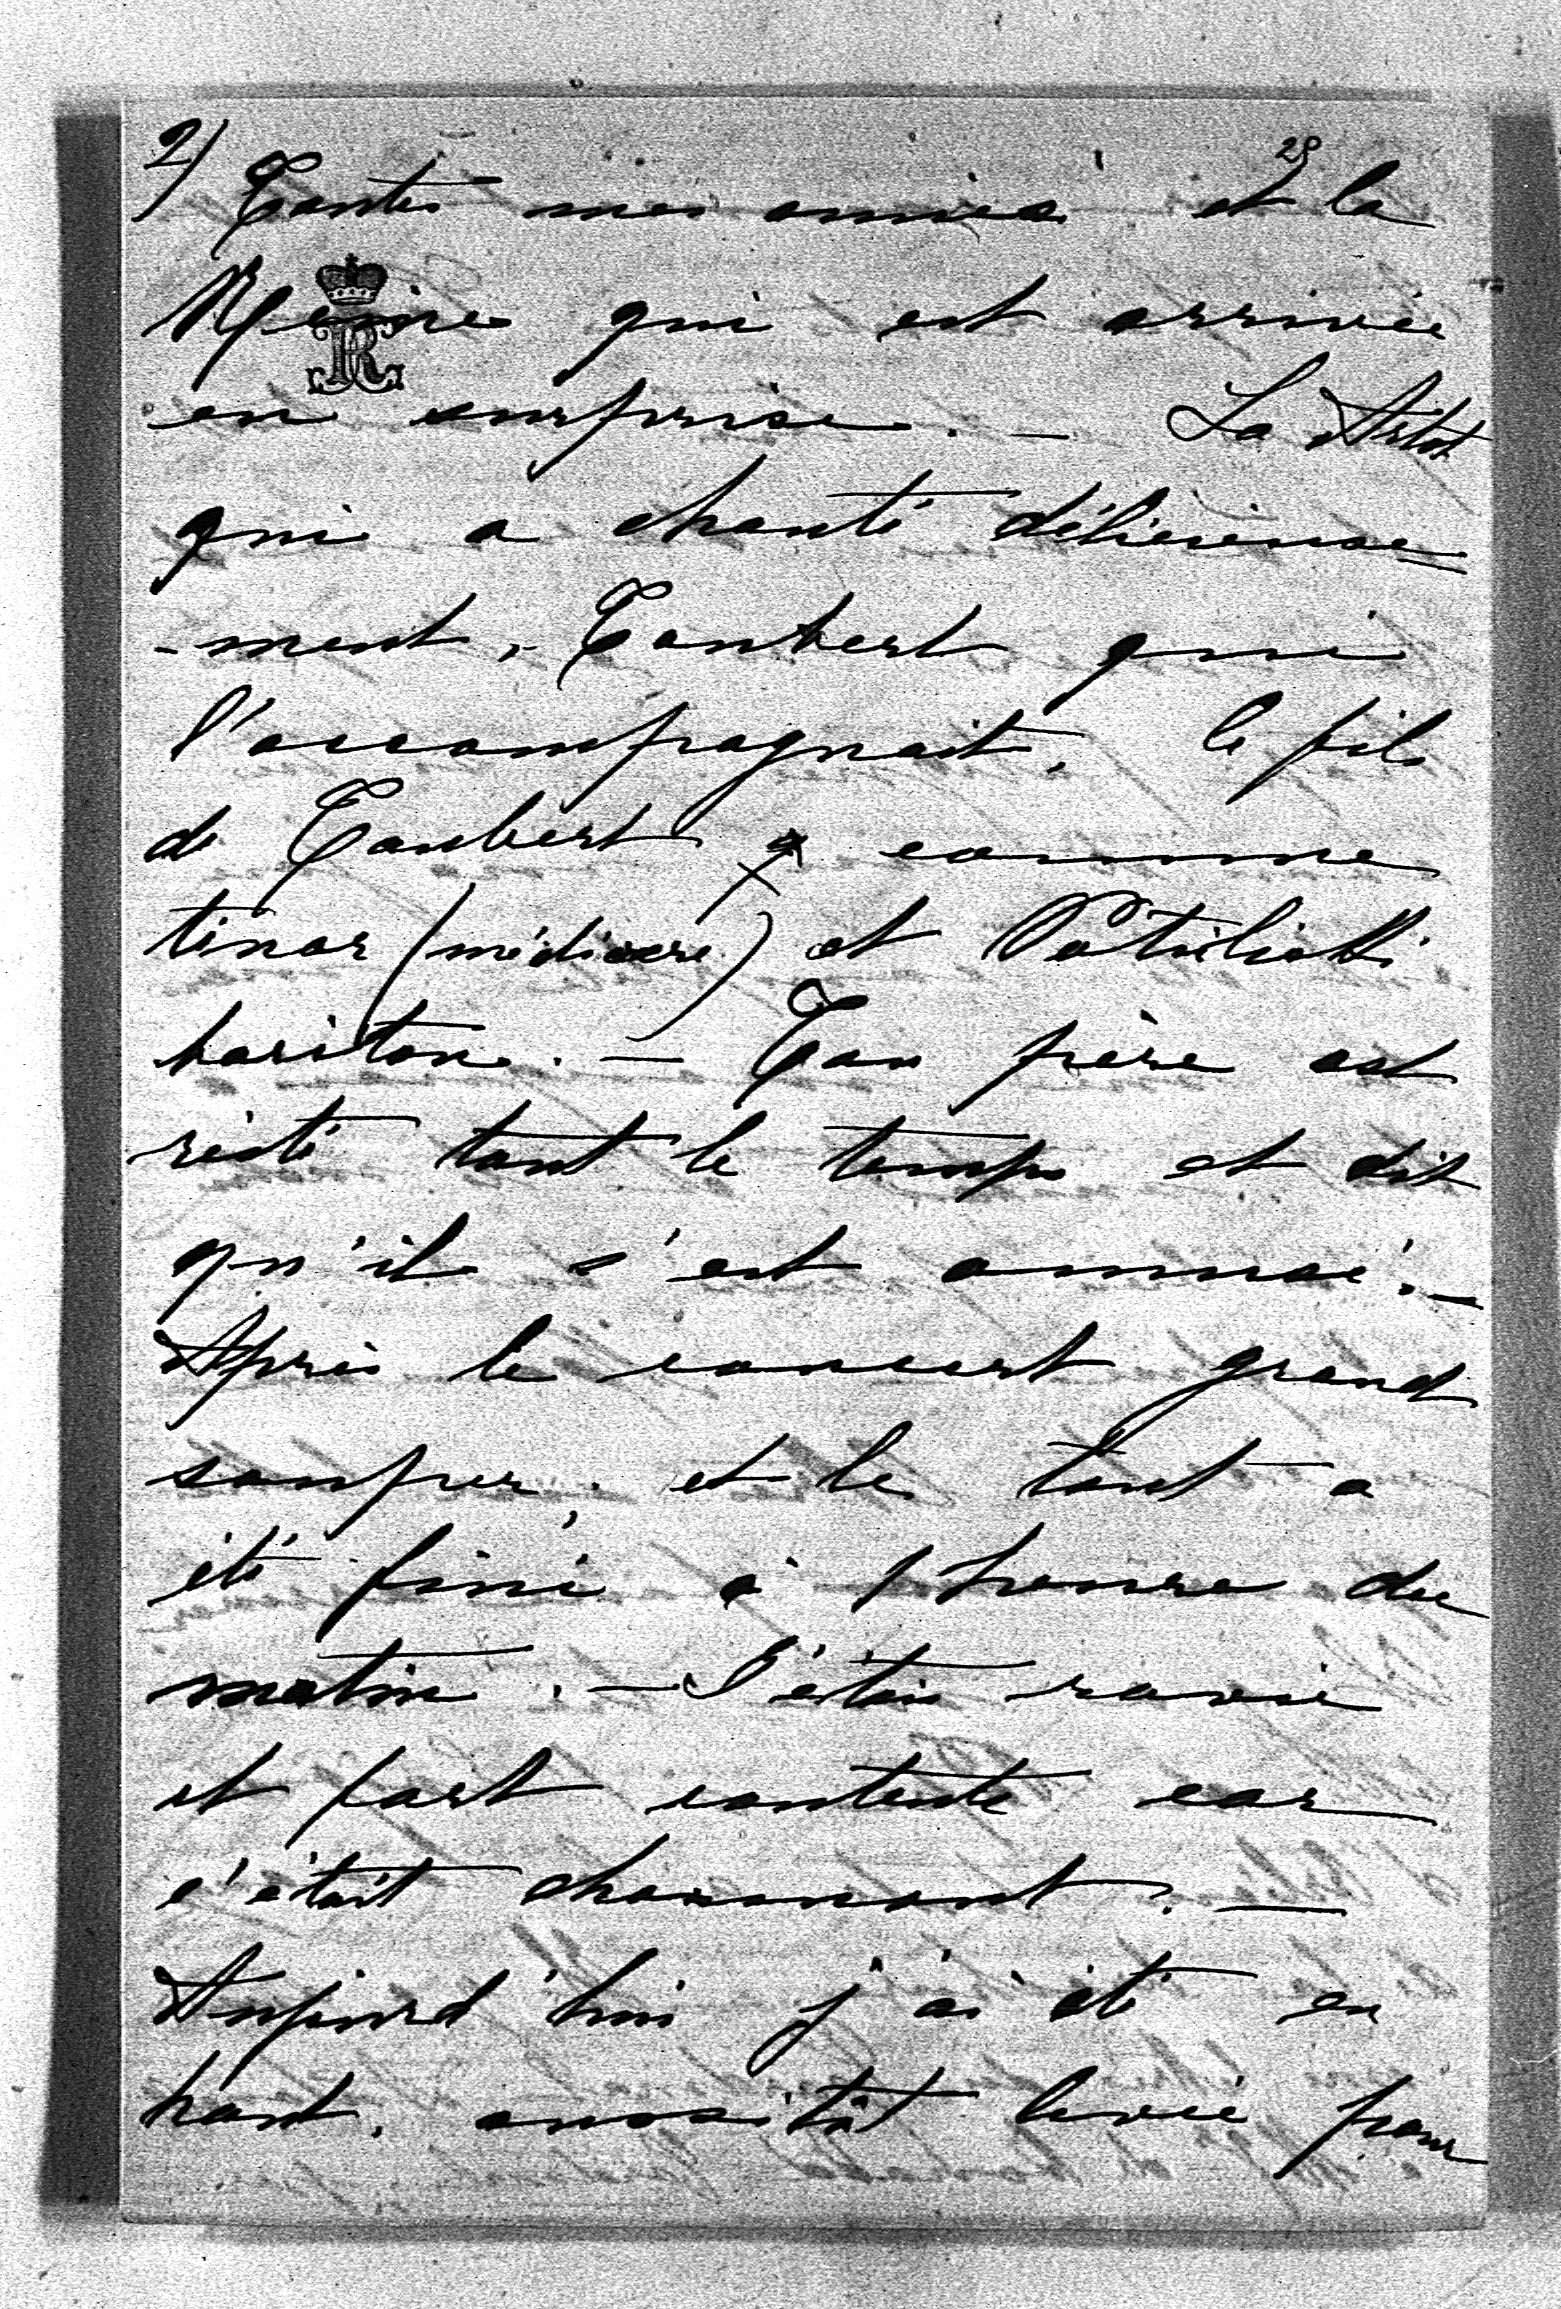 2) 29
Toutes mes amies et la
Reine qui est arrivée
en surprise. — La Artot
qui a chanté délicieuse
-ment, Taubert qui
l'accompagnait, le fils
de Taubert comme
ténor (médiocre) et
bariton. — Ton père est
resté tout le temps et dit
qu'il s'est amusé. —
Après le concert grand
souper, et le tout a
été fini à 1 heure du
matin. — J'étais ravie
et fort contente car
c'était charmant. —
Aujourd'hui j'ai été en
haut, aussitôt levée pour